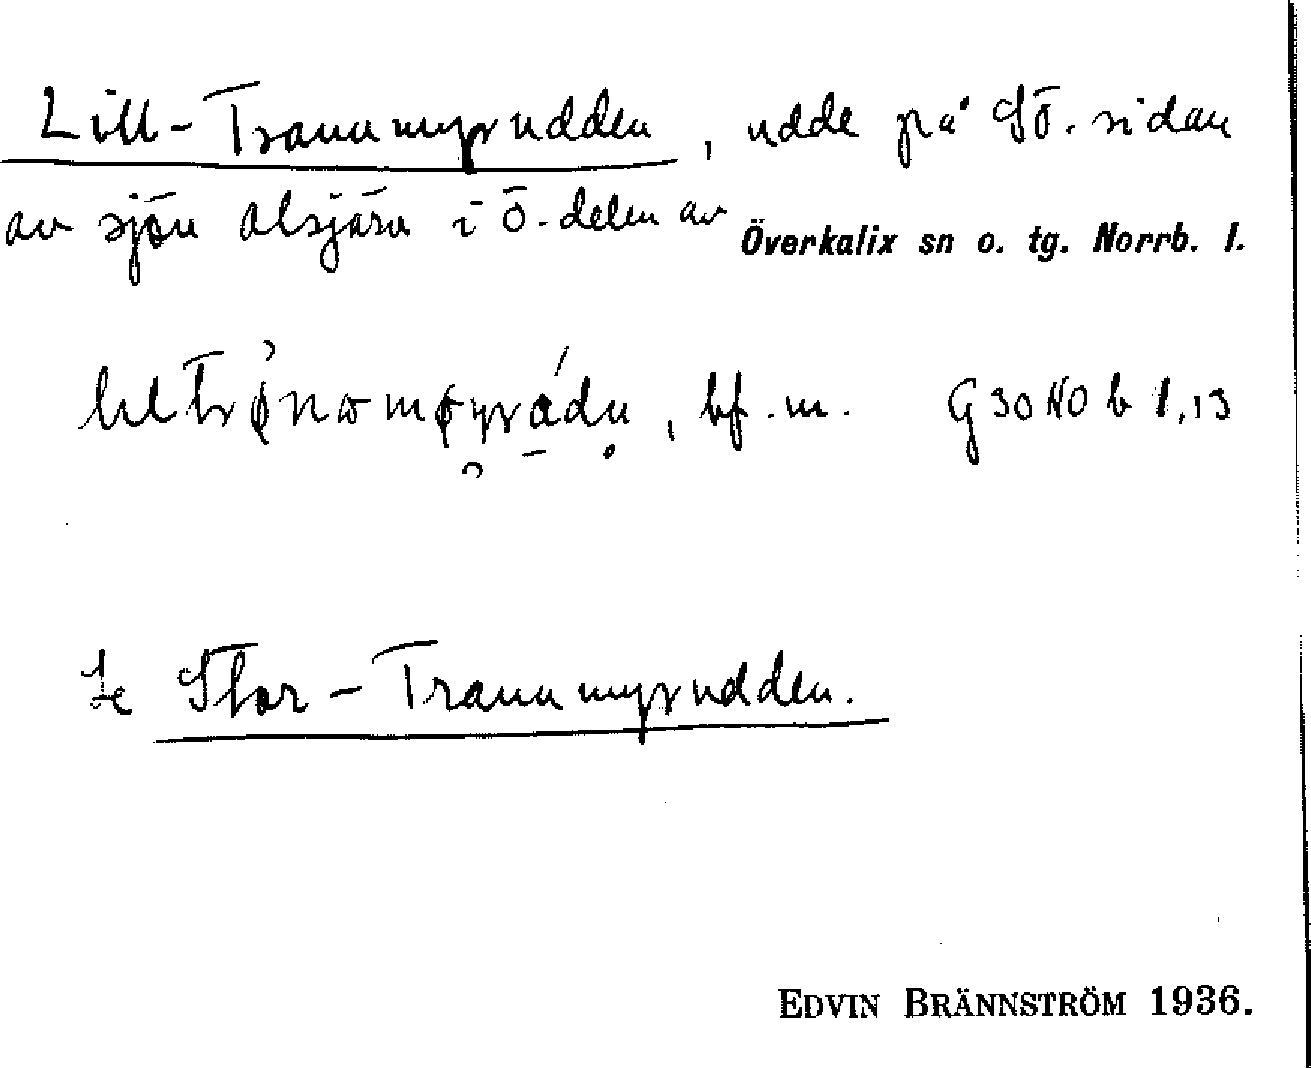 Lill-Tranumyrudden, udde på SÖ. sidan
av sjön Alsjärv i Ö-delen av Överkalix sn o. tg. Norrb. l.
bf. m. G 30 NO b 1,13
Se Stor-Tranumyrudden.
EDVIN BRÄNNSTRÖM 1936.